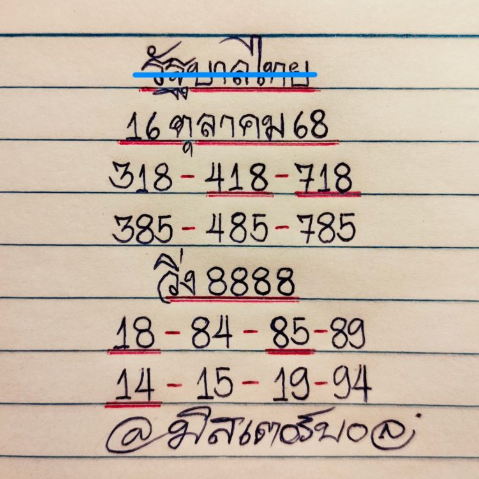 รัฐบาลไทย
16 ตุลาคม 68
318 - 418 - 718
385 - 485 - 785
วิ่ง 8888
18 - 84 - 85 - 89
14 - 15 - 19 - 94
@มิสเตอร์บอล